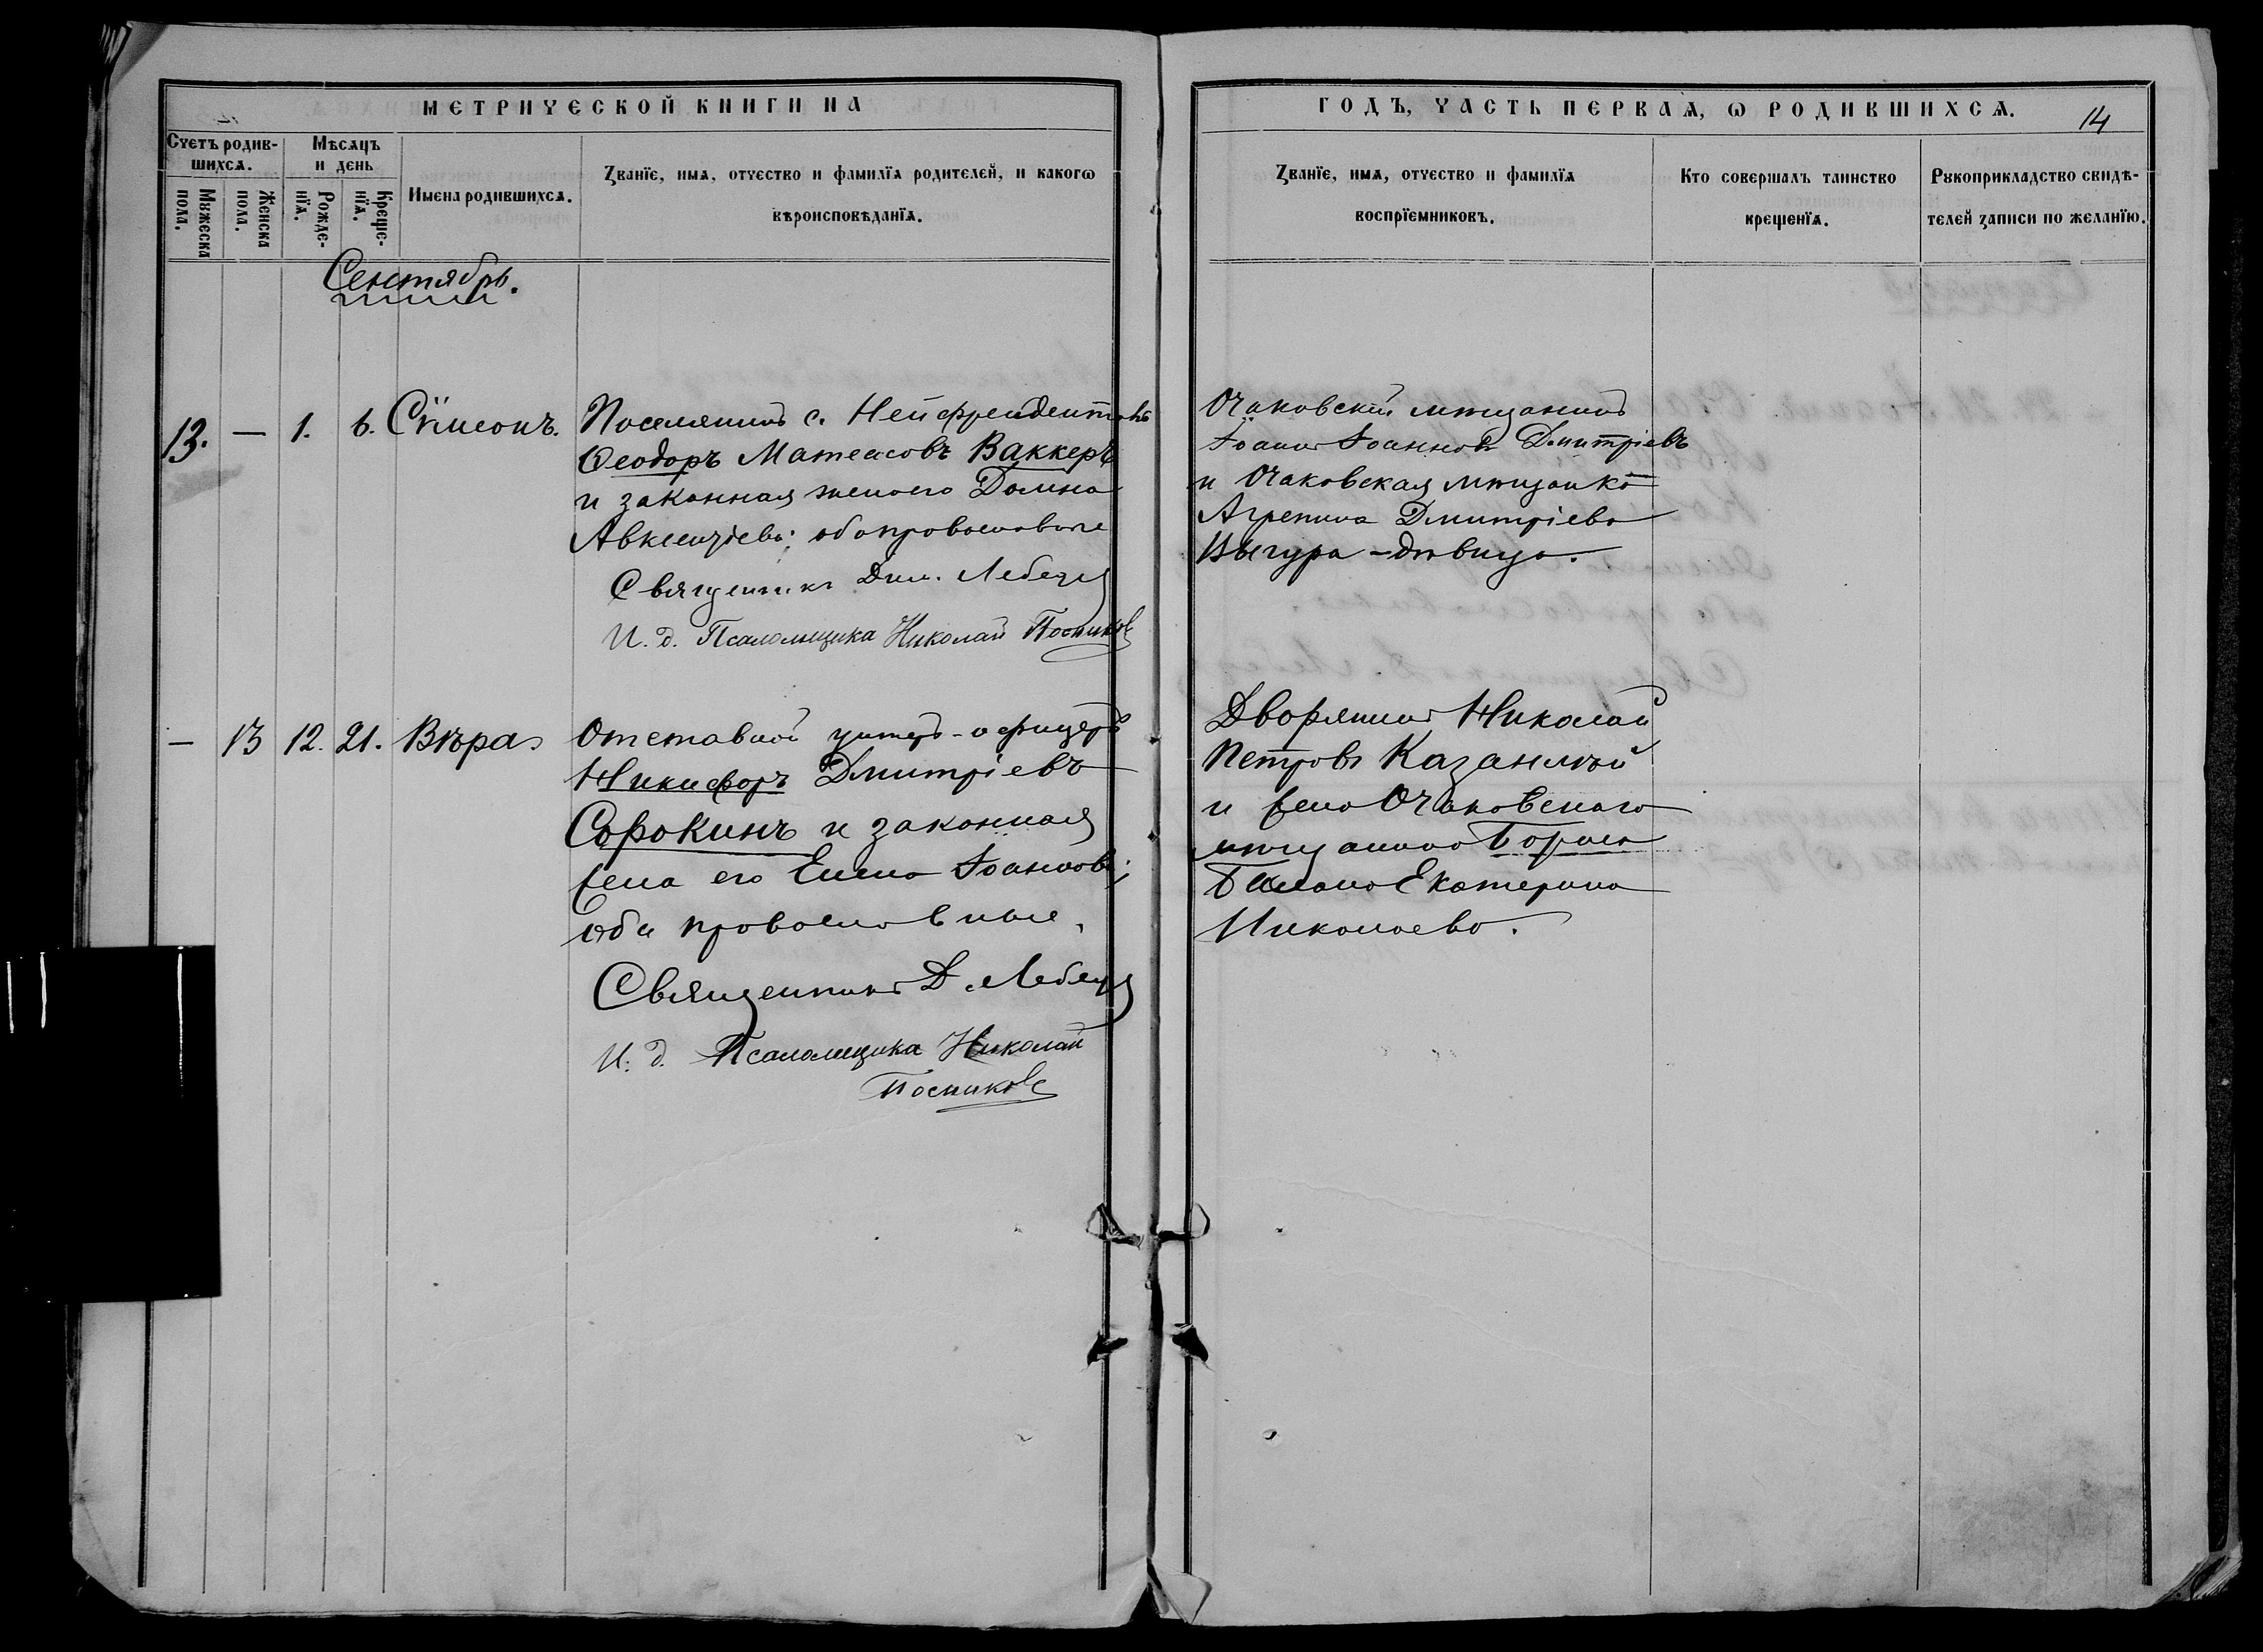 МЕТРИЧЕСКОЙ КНИГИ НА
ГОДЪ, ЧАСТЬ ПЕРВАѦ, Ѡ РОДИВШИХСѦ.
14
Счетъ родив-
шихсѧ.
Мѣсѧцъ
и день
Мужеска
пола.
Женска
пола.
Рожде-
нїѧ.
Креще-
нїѧ.
Имена родившихсѧ.
Званїе, имѧ, отчество и фамилїѧ родителей, и какогѡ
вѣроисповѣданїѧ.
Званїе, имѧ, отчество и фамилїѧ
воспрїемниковъ.
Кто совершалъ таинство
крещенїѧ.
Рꙋкоприкладство свидѣ-
телей записи по желанїю.
Сентябрь.
13. — 1. 6. Сѵмеонъ.
Поселянинъ с. Нейфрейденталь
Ѳеодоръ Матеасовъ Ваккеръ
и законная жена его Домна
Авксентіева; оба православные
Священникъ Дим. Лебедь
И. д. Псаломщика Николай Посников
Очаковскій мѣщанинъ
Іоаннъ Іоанновъ Дмитріевъ
и Очаковская мѣщанка
Агрепина Дмитріева
Цыгура - дѣвица.
— 13 12. 21. Вѣра
Отставной унтеръ-офицеръ
Никифоръ Дмитріевъ
Сорокинъ и законная
жена его Елена Іоаннова;
оба православные.
Священникъ Д. Лебедь
И. д. Псаломщика Николай
Посников
Дворянинъ Николай
Петровъ
и жена Очаковскаго
мѣщанина Бориса
Екатерина
Николаева.